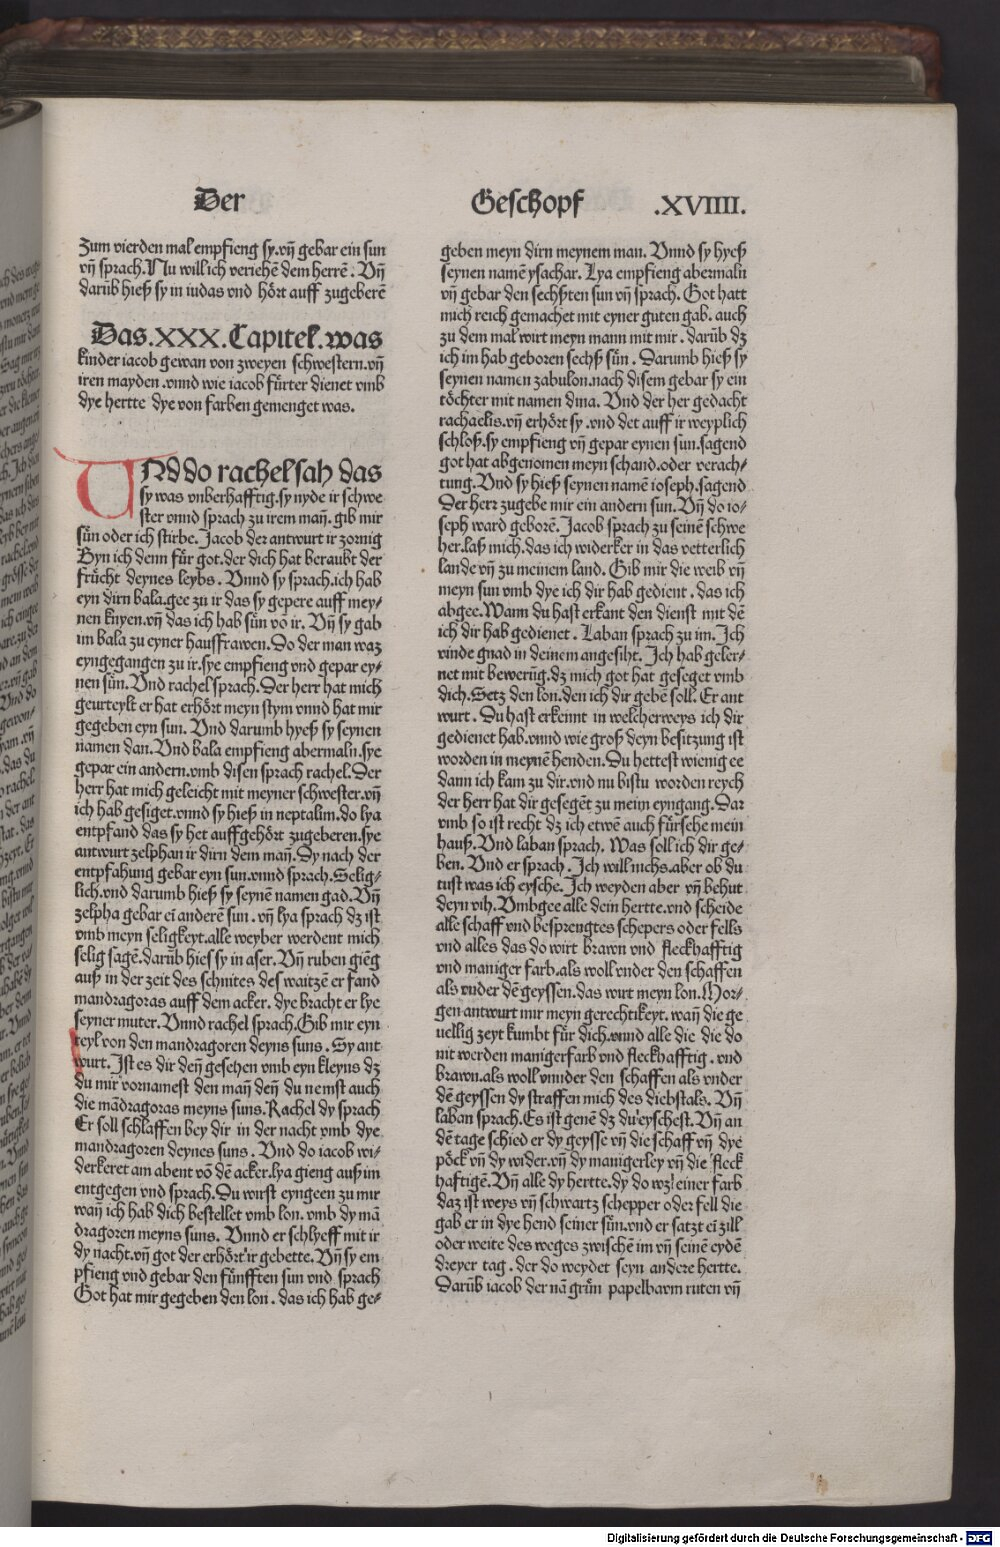 Der
Geschopf .XVIIII.
Zum vierden mal empfieng sy.vñ gebar ein sun
vñ sprach.Nu will ich veriehē dem herrē. Vñ
darūb hieß sy in iudas vnd hört auff zugeberē
Das.XXX.Capitel.was
kinder iacob gewan von zweyen schwestern.vñ
iren mayden.vnnd wie iacob fürter dienet vmb
dye hertte dye von farben gemenget was.
VNd do rachel sah das
sy was vnberhafftig.sy nyde ir schwe
ster vnnd sprach zu irem mañ. gib mir
sün oder ich stirbe. Jacob der antwurt ir zornig
Byn ich denn für got.der dich hat beraubt der
frücht deynes leybs. Vnnd sy sprach.ich hab
eyn dirn bala.gee zu ir das sy gepere auff mey-
nen knyen.vñ das ich hab sün vō ir. Vñ sy gab
im bala zu eyner haussfrawen. Do der man waz
eyngegangen zu ir.sye empfieng vnd gepar ey-
nen sün. Vnd rachel sprach. Der herr hat mich
geurteylt er hat erhört meyn stym vnnd hat mir
gegeben eyn sun. Vnd darumb hyeß sy seynen
namen dan. Vnd bala empfieng abermaln.sye
gepar ein andern.vmb disen sprach rachel. Der
herr hat mich geleicht mit meyner schwester.vñ
ich hab gesiget.vnnd sy hieß in neptalim.do lya
entpfand das sy het auffgehört zugeberen.sye
antwurt zelphan ir dirn dem mañ. Dy nach der
entpfahung gebar eyn sun.vnnd sprach. Selig-
lich.vnd darumb hieß sy seynē namen gad. Vñ
zelpha gebar ei anderē sun. vñ lya sprach dz ist
vmb meyn seligkeyt.alle weyber werdent mich
selig sagē.darūb hies sy in aser. Vñ ruben giēg
auß in der zeit des schnites des waitzē er fand
mandragoras auff dem acker. dye bracht er lye
seyner muter. Vnnd rachel sprach. Gib mir eyn
teyl von den mandragoren deyns suns. Sy ant
wurt. Jst es dir deñ gesehen vmb eyn kleyns dz
du mir vornamest den mañ deñ du nemst auch
die mādragoras meyns suns. Rachel dy sprach
Er soll schlaffen bey dir in der nacht vmb dye
mandragoren deynes suns. Vnd do iacob wi-
derkeret am abent vō dē acker.lya gieng auß im
entgegen vnd sprach. Du wirst eyngeen zu mir
wañ ich hab dich bestellet vmb lon. vmb dy mā
dragoren meyns suns. Vnnd er schlyeff mit ir
dy nacht.vñ got der erhört ir gebette. Vñ sy em
pfieng vnd gebar den fünfften sun vnd sprach
Got hat mir gegeben den lon. das ich hab ge-
geben meyn dirn meynem man. Vnnd sy hyeß
seynen namē ysachar. Lya empfieng abermaln
vñ gebar den sechßten sun vñ sprach. Got hatt
mich reich gemachet mit eyner guten gab. auch
zu dem mal wirt meyn mann mit mir. darūb dz
ich im hab geboren sechß sün. Darumb hieß sy
seynen namen zabulon.nach disem gebar sy ein
töchter mit namen dina. Vnd der her gedacht
rachaelis.vñ erhört sy.vnd det auff ir weyplich
schloß.sy empfieng vñ gepar eynen sun.sagend
got hat abgenomen meyn schand.oder verach-
tung. Vnd sy hieß seynen namē ioseph.sagend
Der herr zugebe mir ein andern sun. Vñ do io-
seph ward geborē. Jacob sprach zu seinē schwe
her.laß mich.das ich widerker in das vetterlich
lande vñ zu meinem land. Gib mir die weib vñ
meyn sun vmb dye ich dir hab gedient. das ich
abgee. Wann du hast erkant den dienst mit dē
ich dir hab gedienet. Laban sprach zu im. Jch
vinde gnad in deinem angesiht. Jch hab geler-
net mit bewerūg.dz mich got hat geseget vmb
dich. Setz den lon.den ich dir gebē soll. Er ant
wurt. Du hast erkennt in welcherweys ich dir
gedienet hab.vnnd wie groß deyn besitzung ist
worden in meynē henden. Du hettest wienig ee
dann ich kam zu dir.vnd nu bistu worden reych
der herr hat dir gesegēt zu meim eyngang. Dar
vmb so ist recht dz ich etwē auch fürsehe mein
hauß. Vnd laban sprach. Was soll ich dir ge-
ben. Vnd er sprach. Jch will nichs.aber ob du
tust was ich eysche. Jch weyden aber vñ behut
deyn vih. Vmbgee alle dein hertte.vnd scheide
alle schaff vnd besprengtes schepers oder fells
vnd alles das do wirt brawn vnd fleckhafftig
vnd maniger farb.als woll vnder den schaffen
als vnder dē geyssen.das wirt meyn lon. Mor-
gen antwurt mir meyn gerechtikeyt. wañ die ge
vellig zeyt kumbt für dich.vnnd alle die die do
nit werden manigerfarb vnd fleckhafftig. vnd
brawn.als woll vnnder den schaffen als vnder
dē geyssen dy straffen mich des diebstals. Vñ
laban sprach. Es ist genē dz du eyschest. Vñ an
dē tage schied er dy geysse vñ die schaff vñ dye
pöck vñ dy wider.vñ dy manigerley vñ die fleck
haftigē. Vñ alle dy hertte.dy do wz einer farb
daz ist weys vñ schwartz schepper oder fell die
gab er in dye hend seiner sün.vnd er satzt ei zill
oder weite des weges zwischē im vñ seinē eydē
dreyer tag. der do weydet seyn andere hertte.
Darūb iacob der nā grün papelbavm ruten vñ
Digitalisierung gefördert durch die Deutsche Forschungsgemeinschaft - DFG